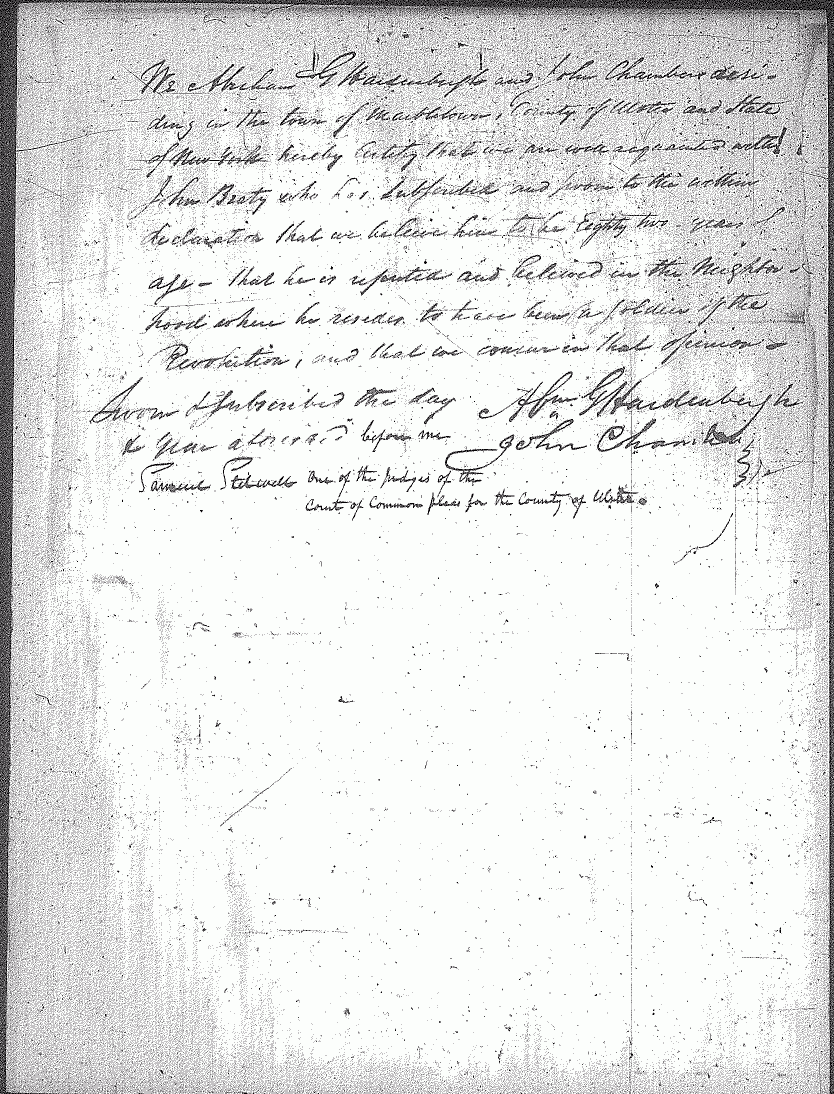 We Abraham G Hardenbergh and John Chambers resi-
ding in the town of Marbletown, County of Ulster and State
of New York hereby Certify that we are well acquainted with
John Beaty who has Subscribed and sworn to the within
declaration that we believe him to be Eighty two years of
age – that he is reputed and believed in the Neighbor-
hood where he resides to have been a soldier of the
Revolution, and that we concur in that opinion –
Sworn & Subscribed the day
& year aforesaid before me
Abm G Hardenbergh
John Chambers
Samuel Stilwell one of the judges of the
Court of Common pleas for the County of Ulster.